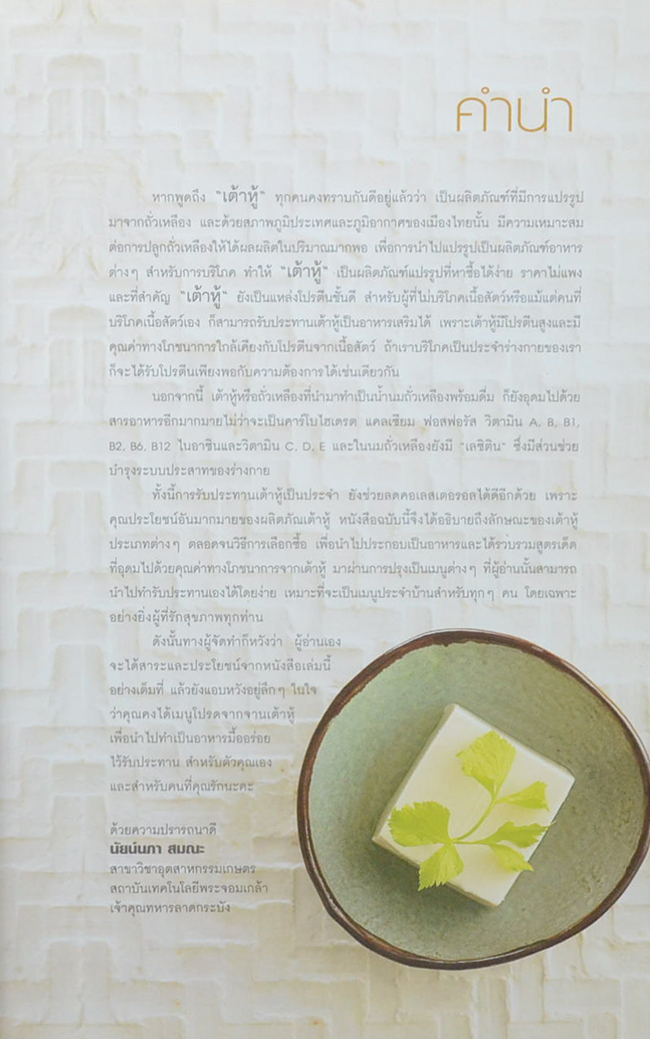 คำนำ
หากพูดถึง "เต้าหู้" ทุกคนคงทราบกันดีอยู่แล้วว่า เป็นผลิตภัณฑ์ที่มีการแปรรูป
มาจากถั่วเหลือง และด้วยสภาพภูมิประเทศและภูมิอากาศของเมืองไทยนั้น มีความเหมาะสม
ต่อการปลูกถั่วเหลืองให้ได้ผลผลิตในปริมาณมากพอ เพื่อการนำไปแปรรูปเป็นผลิตภัณฑ์อาหาร
ต่างๆ สำหรับการบริโภค ทำให้ "เต้าหู้" เป็นผลิตภัณฑ์แปรรูปที่หาซื้อได้ง่าย ราคาไม่แพง
และที่สำคัญ "เต้าหู้" ยังเป็นแหล่งโปรตีนชั้นดี สำหรับผู้ที่ไม่บริโภคเนื้อสัตว์หรือแม้แต่คนที่
บริโภคเนื้อสัตว์เอง ก็สามารถรับประทานเต้าหู้เป็นอาหารเสริมได้ เพราะเต้าหู้มีโปรตีนสูงและมี
คุณค่าทางโภชนาการใกล้เคียงกับโปรตีนจากเนื้อสัตว์ ถ้าเราบริโภคเป็นประจำร่างกายของเรา
ก็จะได้รับโปรตีนเพียงพอกับความต้องการได้เช่นเดียวกัน
นอกจากนี้ เต้าหู้หรือถั่วเหลืองที่นำมาทำเป็นน้ำนมถั่วเหลืองพร้อมดื่ม ก็ยังอุดมไปด้วย
สารอาหารอีกมากมายไม่ว่าจะเป็นคาร์โบไฮเดรต แคลเซียม ฟอสฟอรัส วิตามิน A, B, B1,
B2, B6, B12 ไนอาซินและวิตามิน C, D, E และในนมถั่วเหลืองยังมี "เลซิติน" ซึ่งมีส่วนช่วย
บำรุงระบบประสาทของร่างกาย
ทั้งนี้การรับประทานเต้าหู้เป็นประจำ ยังช่วยลดคอเลสเตอรอลได้ดีอีกด้วย เพราะ
คุณประโยชน์อันมากมายของผลิตภัณเต้าหู้ หนังสือฉบับนี้จึงได้อธิบายถึงลักษณะของเต้าหู้
ประเภทต่างๆ ตลอดจนวิธีการเลือกซื้อ เพื่อนำไปประกอบเป็นอาหารและได้รวบรวมสูตรเด็ด
ที่อุดมไปด้วยคุณค่าทางโภชนาการจากเต้าหู้ มาผ่านการปรุงเป็นเมนูต่างๆ ที่ผู้อ่านนั้นสามารถ
นำไปทำรับประทานเองได้โดยง่าย เหมาะที่จะเป็นเมนูประจำบ้านสำหรับทุกๆ คน โดยเฉพาะ
อย่างยิ่งผู้ที่รักสุขภาพทุกท่าน
ดังนั้นทางผู้จัดทำก็หวังว่า ผู้อ่านเอง
จะได้สาระและประโยชน์จากหนังสือเล่มนี้
อย่างเต็มที่ แล้วยังแอบหวังอยู่ลึกๆ ในใจ
ว่าคุณคงได้เมนูโปรดจากจานเต้าหู้
เพื่อนำไปทำเป็นอาหารมื้ออร่อย
ไว้รับประทาน สำหรับตัวคุณเอง
และสำหรับคนที่คุณรักนะคะ
ด้วยความปรารถนาดี
นัยน์นภา สมณะ
สาขาวิชาอุตสาหกรรมเกษตร
สถาบันเทคโนโลยีพระจอมเกล้า
เจ้าคุณทหารลาดกระบัง